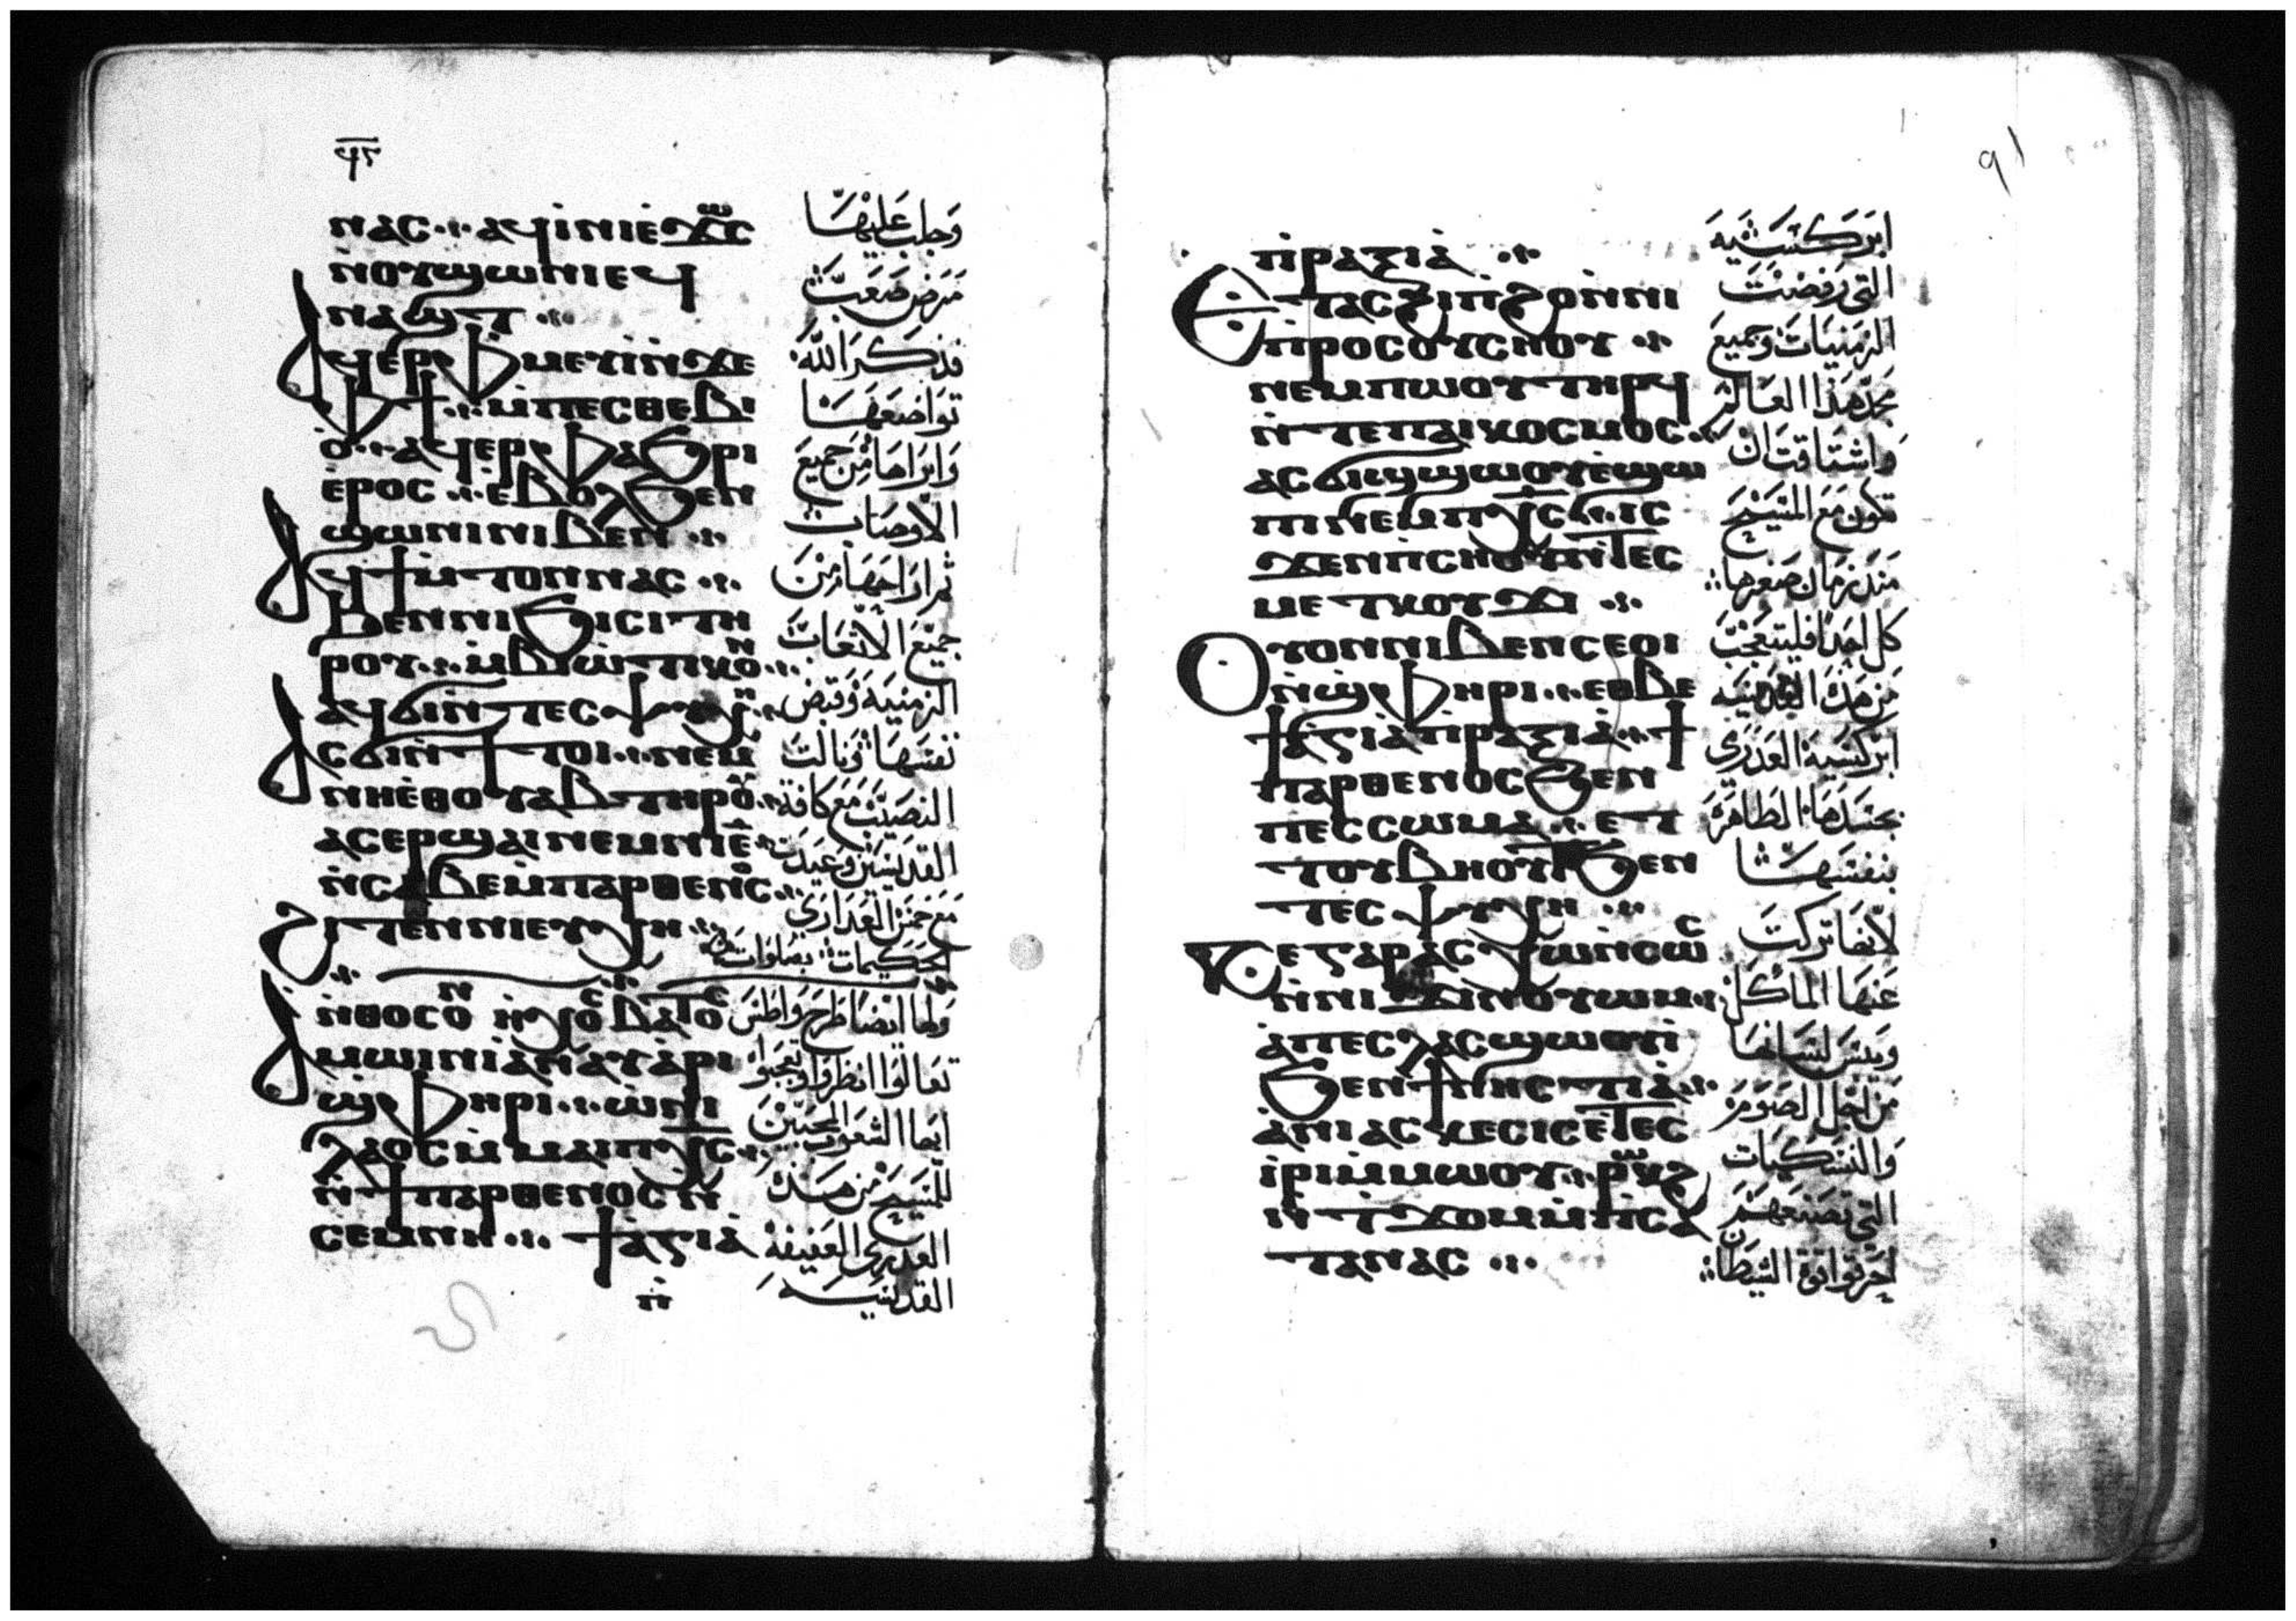 ⲛⲁⲥ ⁘ ⲁϥⲓ̀ⲛⲓ ⲉ̀ϫⲱⲥ
ⲛ̀ⲟⲩϣⲱⲛⲓ ⲉϥ
ⲛⲁϣⲧ ⁘
Ⲁϥⲉⲣⲫⲙⲉⲩⲓ̀ ⲛ̀ϫⲉ
ⲫϯ ⁘ ⲙ̀ⲡⲉⲥⲑⲉⲃⲓ
ⲟ̀ ⁘ ⲁϥⲉⲣⲫⲁϧⲣⲓ
ⲉ̀ⲣⲟⲥ ⁘ ⲉ̀ⲃⲟⲗϧⲉⲛ
ϣⲱⲛⲓ ⲛⲓⲃⲉⲛ ⁘
Ⲁϥϯⲙ̀ⲧⲟⲛ ⲛⲁⲥ ⁘
ϧⲉⲛ ⲛⲓϧⲓⲥⲓ ⲧⲏ
ⲣⲟⲩ ⁘ ⲙ̀ⲃⲓⲱⲧⲓⲕⲟⲛ ⁘
ⲁϥϭⲓ ⲛ̀ⲧⲉⲥⲯⲩⲭⲏ ⁘
Ⲁⲥϭⲓ ⲛ̀ϯⲧⲟⲓ ⁘ ⲛⲉⲙ
ⲛⲏⲉ̀ⲑⲟⲩⲁⲃ ⲧⲏⲣⲟⲩ ⁘
ⲁⲥⲉⲣϣⲁⲓ ⲛⲉⲙ ⲡⲓⲉ̄
ⲛ̀ⲥⲁⲃⲉ ⲙ̀ⲡⲁⲣⲑⲉⲛⲟⲥ ⁘
Ϩⲓⲧⲉⲛ ⲛⲓⲉⲩⲭⲏ ⁘
ⲛ̀ⲑⲟⲥ ⲟⲛ ⲏⲭⲟⲥ ⲃⲁⲧⲟⲥ
Ⲁⲙⲱⲓⲛⲓ ⲁ̀ⲛⲁⲩ ⲁ̀ⲣⲓ
ϣⲫⲏⲣⲓ ⁘ ⲱ̀ ⲛⲓ
ⲗⲁⲟⲥ ⲙ̀ⲙⲁⲓⲡⲭ̅ⲥ̅ ⁘
ⲛ̀ϯⲡⲁⲣⲑⲉⲛⲟⲥ ⲛ̀
ⲥⲉⲙⲛⲏ ⁘ ϯⲁ̀ⲅⲓⲁ̀
ⲡ̀
وجلب عليها
مرض صعب
فذكر الله
تواضعها
وابراها من جميع
الاوصاب
ثم اراحها من
جميع الاتعاب
الزمنيه وقبض
نفسها ونالت
النصيب مع كافة
القديسين وعيدت
مع خمس العذارى
الحكيمات بصلوات
ولها ايضا طرح واطس
تعالوا انظروا وتعجبوا
ايها الشعوب المحبين
للمسيح من هذه
العذرى العفيفه
القديسه
91
ⲡ̀ⲣⲁⲝⲓⲁ̀ ⁘
Ⲉⲧⲁⲥϩⲓⲡϩⲟ ⲛ̀ⲛⲓ
ⲡ̀ⲣⲟⲥⲟⲩⲥⲛⲟⲩ ⁘
ⲛⲉⲙ ⲡⲱⲟⲩ ⲧⲏⲣϥ
ⲛ̀ⲧⲉ ⲡⲁⲓⲕⲟⲥⲙⲟⲥ ⁘
ⲁⲥϭⲓϣϣⲱⲟⲩ ⲉ̀ϣⲱ
ⲡⲓ ⲛⲉⲙ ⲡⲭ̅ⲥ̅ ⁘ ⲓⲥ
ϫⲉⲛ ⲡⲥⲛⲟⲩ ⲛ̀ⲧⲉⲥ
ⲙⲉⲧⲕⲟⲩϫⲓ ⁘
Ⲟⲩⲟⲛ ⲛⲓⲃⲉⲛ ⲥⲉⲟⲓ
ⲛ̀ϣⲫⲏⲣⲓ ⁘ ⲉⲑⲃⲉ
ϯⲁ̀ⲅⲓⲁ̀ ⲡ̀ⲣⲁⲝⲓⲁ̀ ⁘ ϯ
ⲡⲁⲣⲑⲉⲛⲟⲥ ϧⲉⲛ
ⲡⲉⲥⲥⲱⲙⲁ ⁘ ⲉⲧ
ⲧⲟⲩⲃⲏⲟⲩⲧ ϧⲉⲛ
ⲧⲉⲥⲯⲩⲭⲏ ⁘
Ⲕⲉ ⲅⲁⲣ ⲁⲥⲭⲱ ⲛ̀ⲥⲱⲥ
ⲛ̀ⲛⲓϫⲓⲛⲟⲩⲱⲙ ⁘
ⲁ̀ ⲡⲉⲥⲗⲁⲥ ϣⲱⲟⲩⲓ̀
ϧⲉⲛ ϯⲛⲏⲥⲧⲓⲁ̀ ⁘
ⲁ̀ ⲛⲓⲁⲥⲕⲉⲥⲓⲥ ⲉ̀ⲧⲉⲥ
ⲓ̀ⲣⲓ ⲙ̀ⲙⲱⲟⲩ ⁘ ⲣⲱⲕϩ
ⲛ̀ⲧϫⲟⲙ ⲙ̀ⲡⲥⲁ
ⲧⲁⲛⲁⲥ ⁘
ابركسيه
التى رفضت
الزمنيات وجميع
مجد هذا العالم
واشتاقت ان
تكون مع المسيح
منذ زمان صغرها
كل احدا فليتعجب
من هذه القديسه
ابركسيه العذرى
بجسدها الطاهرة
بنفسها
لانها تركت
عنها الماكل
ويبس لسانها
من اجل الصوم
والنسكيات
التى تصنعهم
احرقوا قوة الشيطان